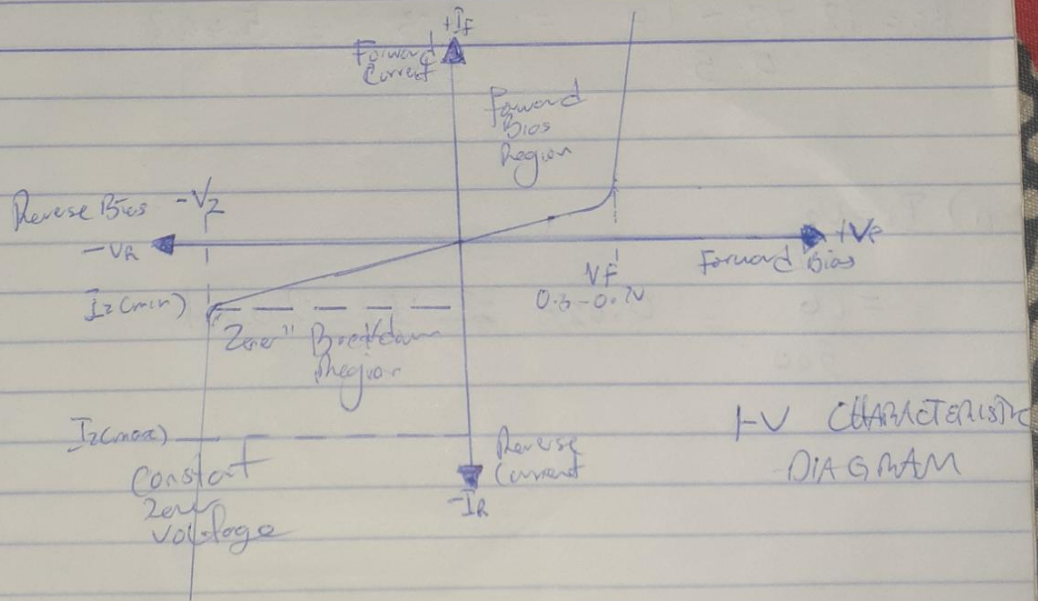 +IF
Forward
Current
Forward
Bias
Region
Reverse Bias
-VZ
-VR
+VF
Forward Bias
VF
0.3-0.7V
Iz(min)
Zener" Breakdown
Region
Iz(max)
Reverse
Current
-IR
Constat
Zener
Voltage
I-V CHARACTERISTIC
DIAGRAM